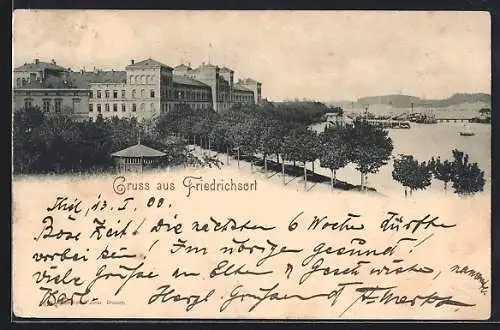 Gruss aus Friedrichsort
Kiel, 13. I. 00.
Böse Zeit! Die nächsten 6 Wochen dürften
vorbei sein! Im übrigen gesund!
viele Grüße an Eltern & Geschwister, namentl.
Karl. Herzl. Grüßend